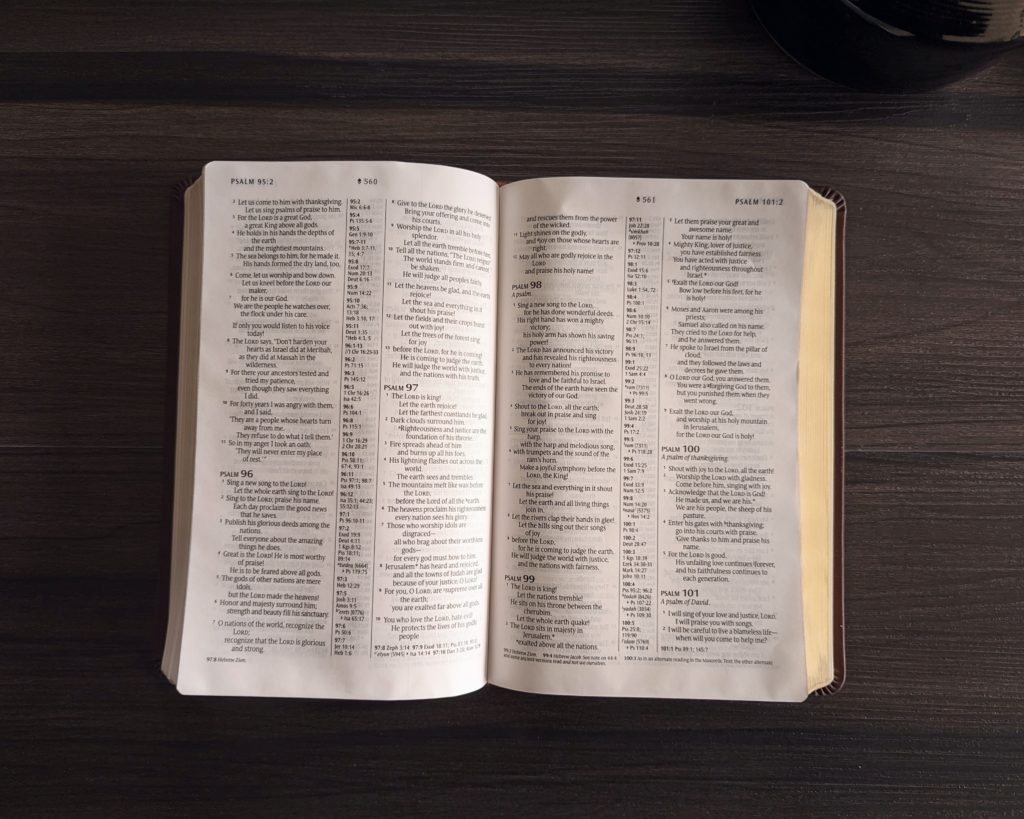 PSALM 95:2
560
2 Let us come to him with thanksgiving.
Let us sing psalms of praise to him.
3 For the LORD is a great God,
a great King above all gods.
4 He holds in his hands the depths of the
earth
and the mightiest mountains.
5 The sea belongs to him, for he made it.
His hands formed the dry land, too.
6 Come, let us worship and bow down.
Let us kneel before the LORD our
maker,
7 for he is our God.
We are the people he watches over,
the flock under his care.
If only you would listen to his voice
today!
8 The LORD says, "Don't harden your
hearts as Israel did at Meribah,
as they did at Massah in the
wilderness.
9 For there your ancestors tested and
tried my patience,
even though they saw everything
I did.
10 For forty years I was angry with them,
and I said,
'They are a people whose hearts turn
away from me.
They refuse to do what I tell them.'
11 So in my anger I took an oath:
'They will never enter my place
of rest.'"
PSALM 96
1 Sing a new song to the LORD!
Let the whole earth sing to the LORD!
2 Sing to the LORD; praise his name.
Each day proclaim the good news
that he saves.
3 Publish his glorious deeds among the
nations.
Tell everyone about the amazing
things he does.
4 Great is the LORD! He is most worthy
of praise!
He is to be feared above all gods.
5 The gods of other nations are mere
idols,
but the LORD made the heavens!
6 Honor and majesty surround him;
strength and beauty fill his sanctuary.
7 O nations of the world, recognize the
LORD;
recognize that the LORD is glorious
and strong.
95:2
Mic 6:6
95:4
Ps 135:5-6
95:5
Gen 1:9-10
95:7-11
95:8
Exod 17:7
Num 20:13
Deut 6:16
95:9
Num 14:22
95:10
Acts 7:36;
13:18
Heb 3:10, 17
95:11
Deut 1:35
96:1-13
//1 Chr 16:23-33
96:2
Ps 71:15
96:3
Ps 145:12
96:5
1 Chr 16:26
Isa 42:5
96:6
Ps 104:1
96:8
Ps 115:1
96:9
1 Chr 16:29
2 Chr 20:21
96:10
Ps 58:11;
67:4; 93:1
96:11
Ps 97:1; 98:7
Isa 49:13
96:12
Isa 35:1; 44:23;
55:12-13
97:1
Ps 96:10-11
97:2
Exod 19:9
Deut 4:11
1 Kgs 8:12
Ps 18:11;
89:14
97:3
Heb 12:29
97:5
Josh 3:11
Amos 9:5
97:6
Ps 50:6
97:7
Jer 10:14
Heb 1:6
8 Give to the LORD the glory he deserves!
Bring your offering and come into
his courts.
9 Worship the LORD in all his holy
splendor.
Let all the earth tremble before him.
10 Tell all the nations, "The LORD reigns!"
The world stands firm and cannot
be shaken.
He will judge all peoples fairly.
11 Let the heavens be glad, and the earth
rejoice!
Let the sea and everything in it
shout his praise!
12 Let the fields and their crops burst
out with joy!
Let the trees of the forest sing
for joy
13 before the LORD, for he is coming!
He is coming to judge the earth.
He will judge the world with justice,
and the nations with his truth.
PSALM 97
1 The LORD is king!
Let the earth rejoice!
Let the farthest coastlands be glad.
2 Dark clouds surround him.
*Righteousness and justice are the
foundation of his throne.
3 Fire spreads ahead of him
and burns up all his foes.
4 His lightning flashes out across the
world.
The earth sees and trembles.
5 The mountains melt like wax before
the LORD,
before the Lord of all the *earth.
6 The heavens proclaim his righteousness;
every nation sees his glory.
7 Those who worship idols are
disgraced—
all who brag about their worthless
gods—
for every god must bow to him.
8 Jerusalem* has heard and rejoiced,
and all the towns of Judah are glad
because of your justice, O LORD!
9 For you, O LORD, are *supreme over all
the earth;
you are exalted far above all gods.
10 You who love the LORD, hate evil!
He protects the lives of his godly
people
97:8 Hebrew Zion.
561
PSALM 101:2
and rescues them from the power
of the wicked.
11 Light shines on the godly,
and *joy on those whose hearts are
right.
12 May all who are godly rejoice in the
LORD
and praise his holy name!
PSALM 98
A psalm.
1 Sing a new song to the LORD,
for he has done wonderful deeds.
His right hand has won a mighty
victory;
his holy arm has shown his saving
power!
2 The LORD has announced his victory
and has revealed his righteousness
to every nation!
3 He has remembered his promise to
love and be faithful to Israel.
The ends of the earth have seen the
victory of our God.
4 Shout to the LORD, all the earth;
break out in praise and sing
for joy!
5 Sing your praise to the LORD with the
harp,
with the harp and melodious song,
6 with trumpets and the sound of the
ram's horn.
Make a joyful symphony before the
LORD, the King!
7 Let the sea and everything in it shout
his praise!
Let the earth and all living things
join in.
8 Let the rivers clap their hands in glee!
Let the hills sing out their songs
of joy
9 before the LORD,
for he is coming to judge the earth.
He will judge the world with justice,
and the nations with fairness.
PSALM 99
1 The LORD is king!
Let the nations tremble!
He sits on his throne between the
cherubim.
Let the whole earth quake!
2 The LORD sits in majesty in
Jerusalem,*
*exalted above all the nations.
97:11
Job 22:28
97:12
Ps 32:11
98:1
Exod 15:6
Isa 52:10
98:3
Luke 1:54, 72
98:4
Ps 100:1
98:6
Num 10:10
2 Chr 15:14
98:7
Ps 24:1;
96:11
98:9
Ps 96:10, 13
99:1
Exod 25:22
1 Sam 4:4
99:2
99:3
Deut 28:58
Josh 24:19
1 Sam 2:2
99:4
Ps 17:2
99:5
99:6
Exod 15:25
1 Sam 7:9
99:7
Exod 33:9
Num 12:5
99:8
Num 14:20
100:1
Ps 98:4
100:2
Deut 28:47
100:3
1 Kgs 18:39
Ezek 34:30-31
100:4
Ps 95:2; 96:2
100:5
Ps 25:8;
119:90
3 Let them praise your great and
awesome name.
Your name is holy!
4 Mighty King, lover of justice,
you have established fairness.
You have acted with justice
and righteousness throughout
Israel.*
5 *Exalt the LORD our God!
Bow low before his feet, for he
is holy!
6 Moses and Aaron were among his
priests;
Samuel also called on his name.
They cried to the LORD for help,
and he answered them.
7 He spoke to Israel from the pillar of
cloud,
and they followed the laws and
decrees he gave them.
8 O LORD our God, you answered them.
You were a *forgiving God to them,
but you punished them when they
went wrong.
9 Exalt the LORD our God,
and worship at his holy mountain
in Jerusalem,
for the LORD our God is holy!
PSALM 100
A psalm of thanksgiving.
1 Shout with joy to the LORD, all the earth!
2 Worship the LORD with gladness.
Come before him, singing with joy.
3 Acknowledge that the LORD is God!
He made us, and we are his.*
We are his people, the sheep of his
pasture.
4 Enter his gates with *thanksgiving;
go into his courts with praise.
*Give thanks to him and praise his
name.
5 For the LORD is good.
His unfailing love continues forever,
and his faithfulness continues to
each generation.
PSALM 101
A psalm of David.
1 I will sing of your love and justice, LORD.
I will praise you with songs.
2 I will be careful to live a blameless life—
when will you come to help me?
101:1 Ps 89:1; 145:7
99:2 Hebrew Zion. 99:4 Hebrew Jacob.